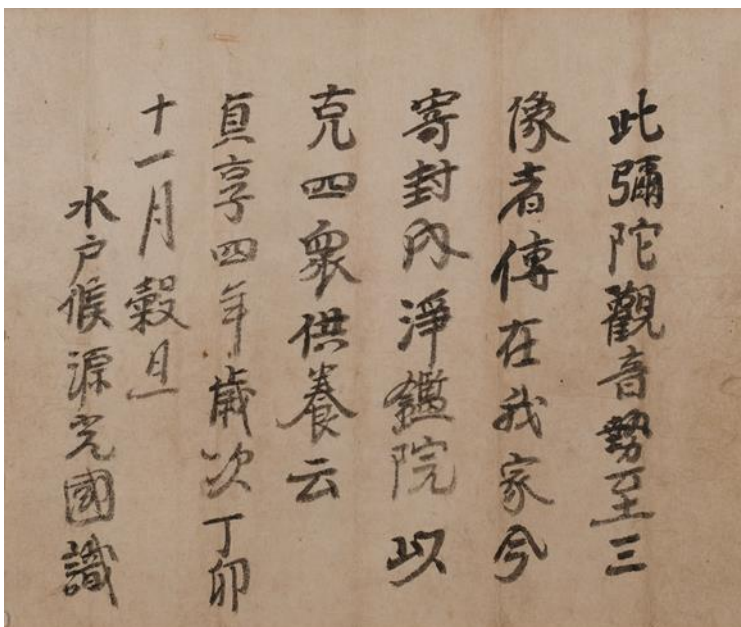 此彌陀觀音勢至三
像者傳在我家今
寄封内淨鑑院以
充四衆供養云
貞享四年歳次丁卯
十一月穀旦
水戸候源光國識